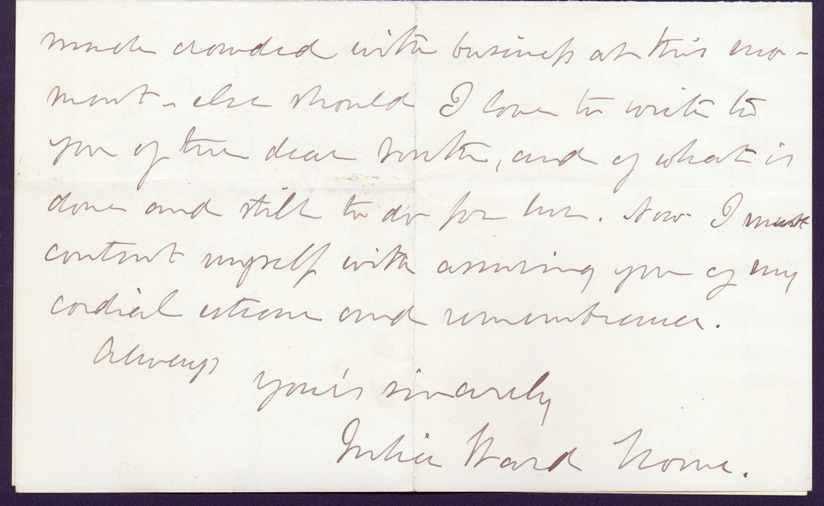 much crowded with business at this mo-
ment - else should I love to write to
you of the dear youth, and of what is
done and still to do for him. Now I must
content myself with assuring you of my
cordial esteem and remembrance.
Always
your's sincerely
Julia Ward Howe.